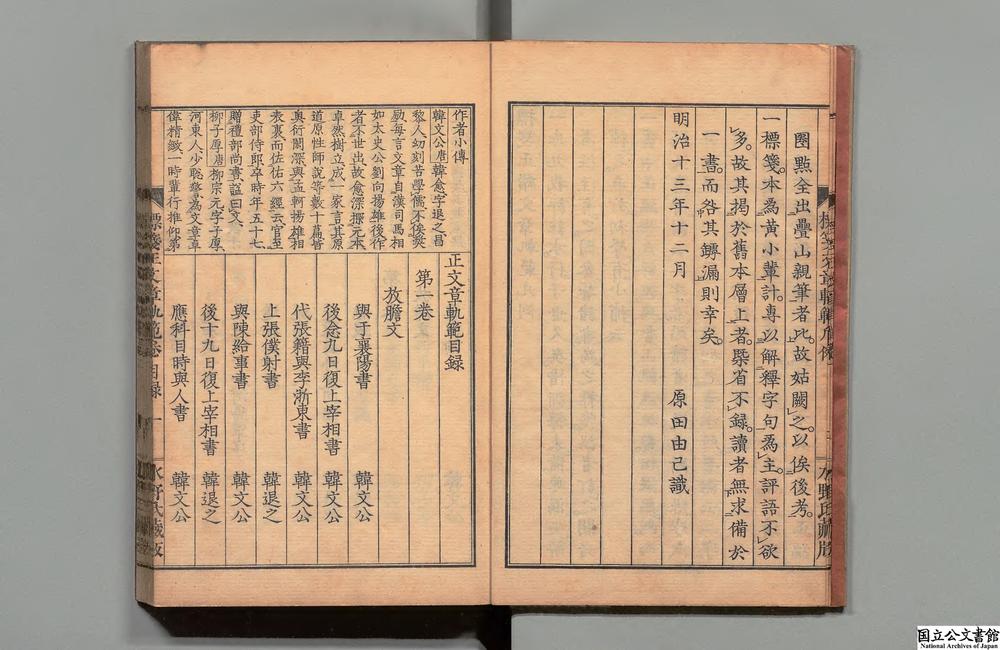 圈點全出疊山親筆者此故姑闕之以俟後考
一標箋本爲黃小輩計專以解釋字句爲主評語不欲
多故其揭於舊本層上者槩省不錄讀者無求備於
一書而咎其鏬漏則幸矣
明治十三年十二月
原田由己識
水野氏藏版
作者小傳
韓文公 唐韓愈字退之昌
黎人幼刻苦學儒不俟奬
勵每言文章自漢司馬相
如太史公劉向揚雄後作
者不世出故愈深探元本
卓然樹立成一家言其原
道原性師說等數十篇皆
奥衍閎深與孟軻揚雄相
表裏而佐佑六經云官至
吏部侍郎卒時年五十七
贈禮部尚書謚曰文
柳子厚 唐柳宗元字子厚
河東人少聰警爲文章卓
偉精緻一時輩行推仰第
正文章軌範目録
第一卷
放膽文
與于襄陽書 韓文公
後念九日復上宰相書 韓文公
代張籍與李浙東書 韓文公
上張僕射書 韓退之
與陳給事書 韓文公
後十九日復上宰相書 韓退之
應科目時與人書 韓文公
標箋正文章軌範卷 目録 一
水野氏藏版
国立公文書館
National Archives of Japan